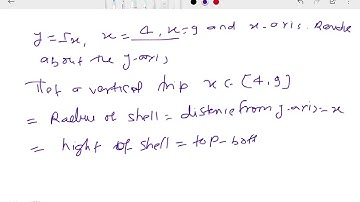 y = √x, x = 4, x = 9 and x-axis. Revolve
about the y-axis,
Let a vertical strip x ∈ [4, 9]
= Radius of shell = distance from y-axis = x
= hight of shell = top - bott